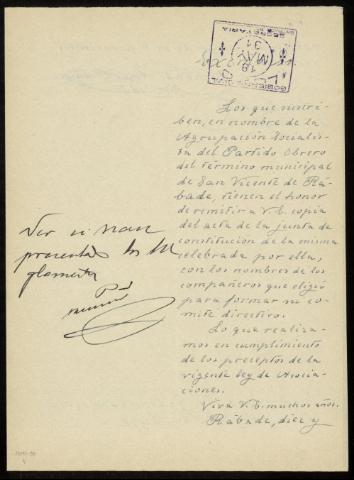 GOBIERNO CIVIL
SECRETARIA
18 MAY 31
LUGO
Los que suscri-
ben, en nombre de la
Agrupación Socialis-
ta del Partido Obrero
del término municipal
de San Vicente de Rá-
bade, tienen el honor
de remitir a V. E. copia
del acta de la junta de
constitución de la misma
celebrada por ella,
con los nombres de los
compañeros que eligió
para formar su co-
mité directivo.
Lo que realiza-
mos en cumplimiento
de los preceptos de la
vigente ley de Asocia-
ciones.
Viva V. E. muchos años.
Rábade, diez y
Ver si han
presentado los Re
glamentos